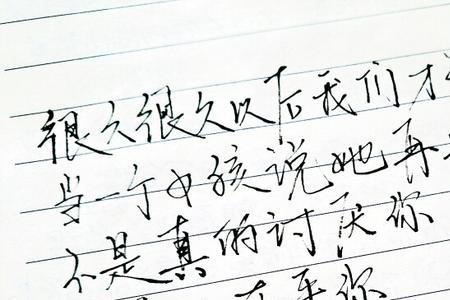 很久很久以后我们才
当一个女孩说她再
不是真的讨厌你
在乎你